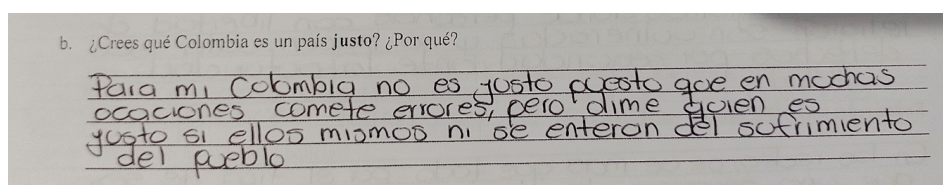 b. ¿Crees qué Colombia es un país justo? ¿Por qué?
Para mi Colombia no es justo puesto que en muchas
ocaciones comete errores, pero dime quien es
justo si ellos mismos ni se enteran del sufrimiento
del pueblo